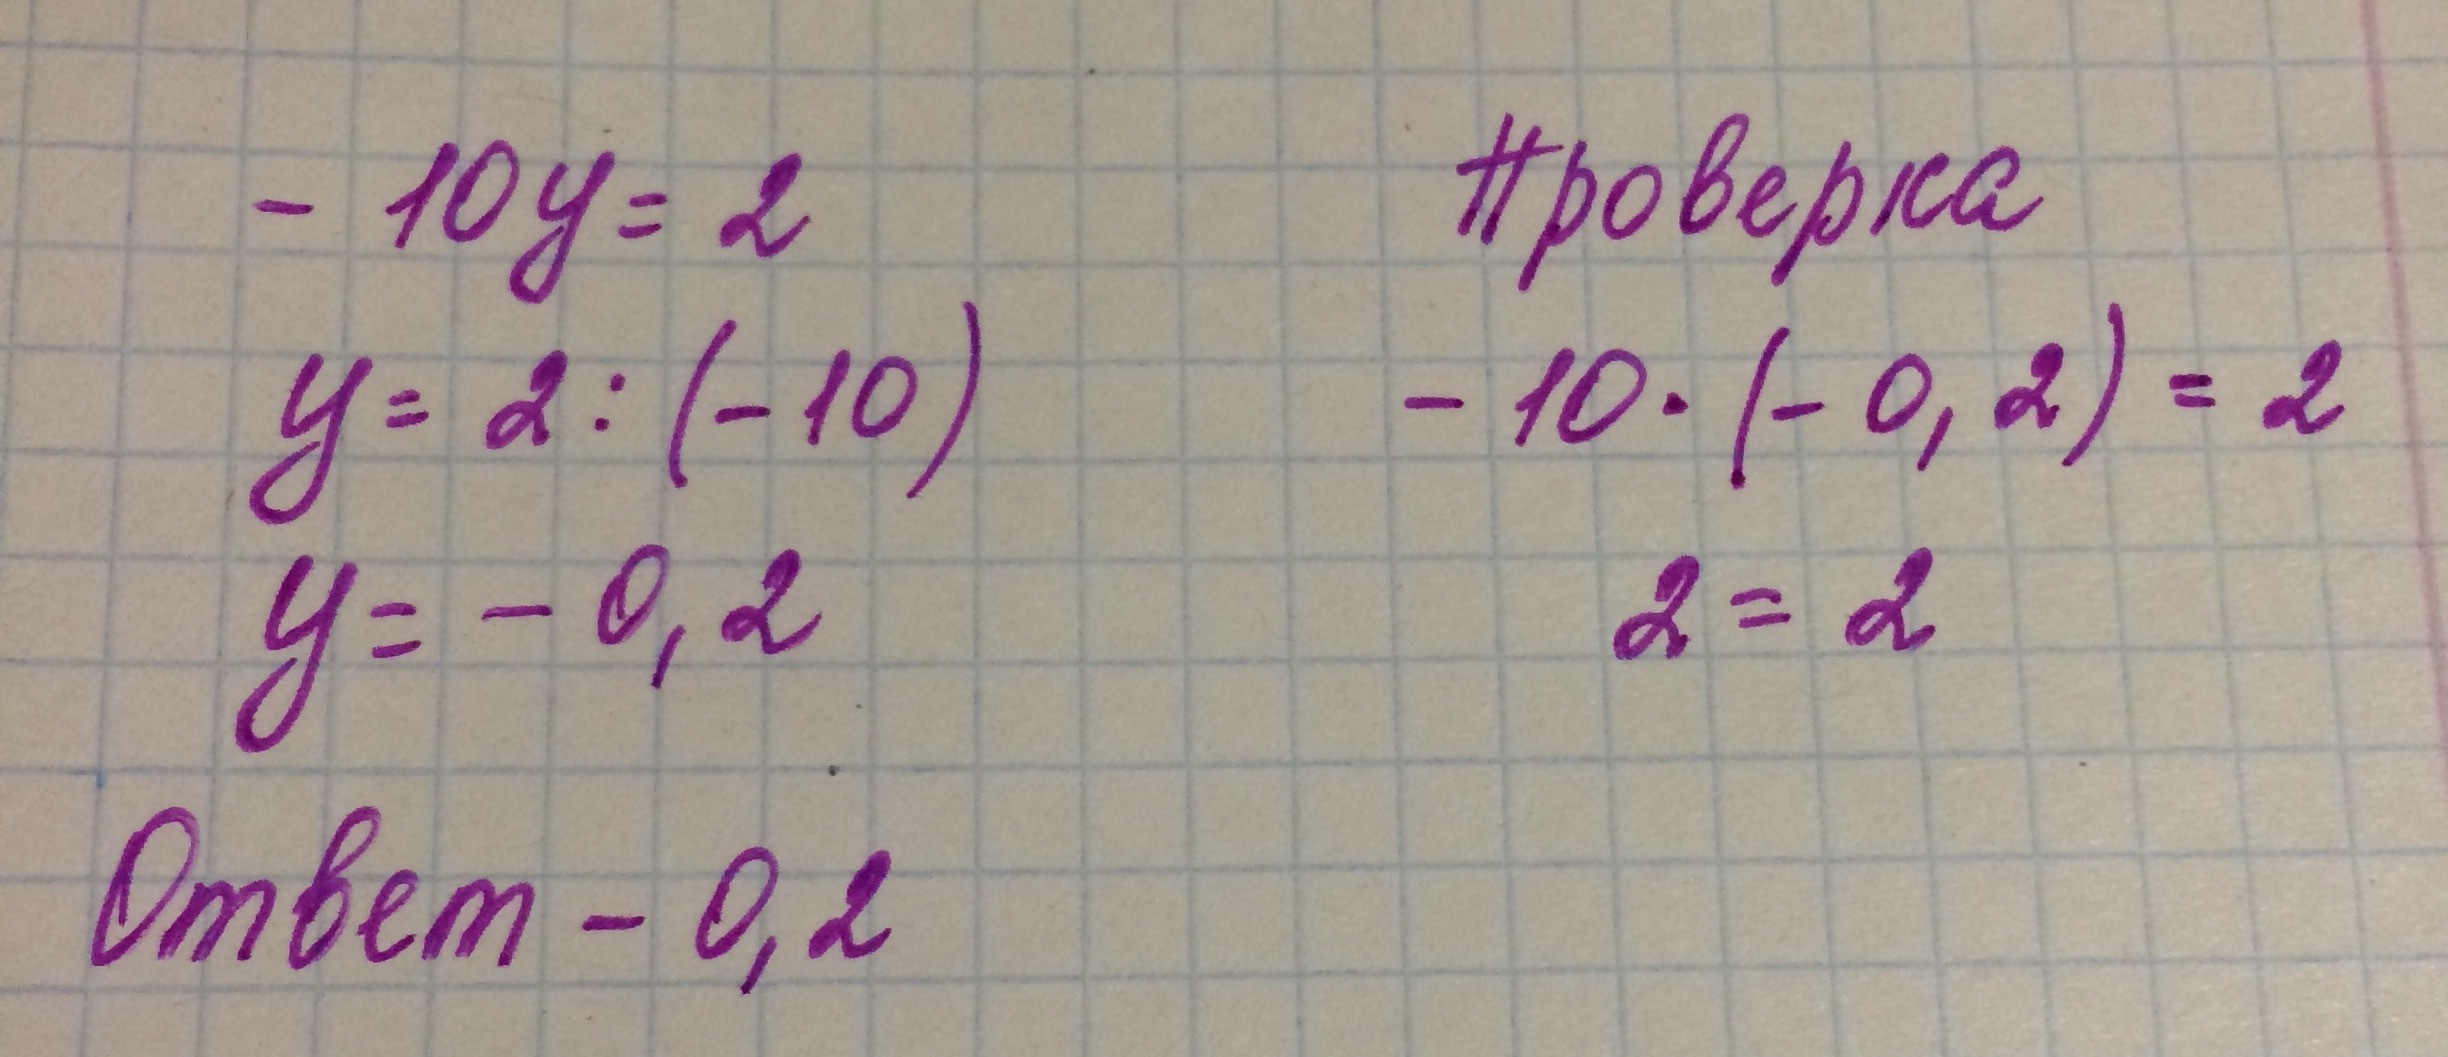 - 10y = 2
y = 2 : (-10)
y = - 0,2
Ответ - 0,2
Проверка
- 10 · (- 0,2) = 2
2 = 2